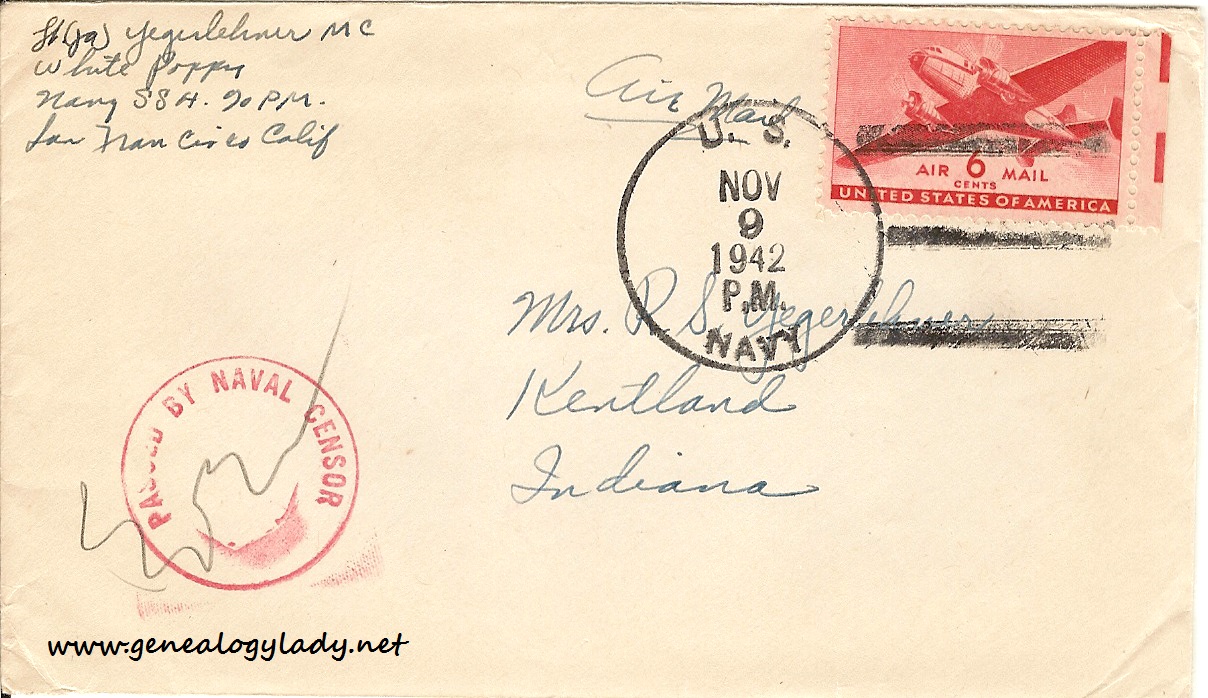 Lt (jg) Yegerlehner MC
White Poppy
Navy SS4. % P.M.
San Francisco Calif
Air Mail
AIR 6 MAIL
CENTS
UNITED STATES OF AMERICA
U. S.
NOV
9
1942
P.M.
NAVY
Mrs. R S Yegerlehner
Kentland
Indiana
PASSED BY NAVAL CENSOR
www.genealogylady.net